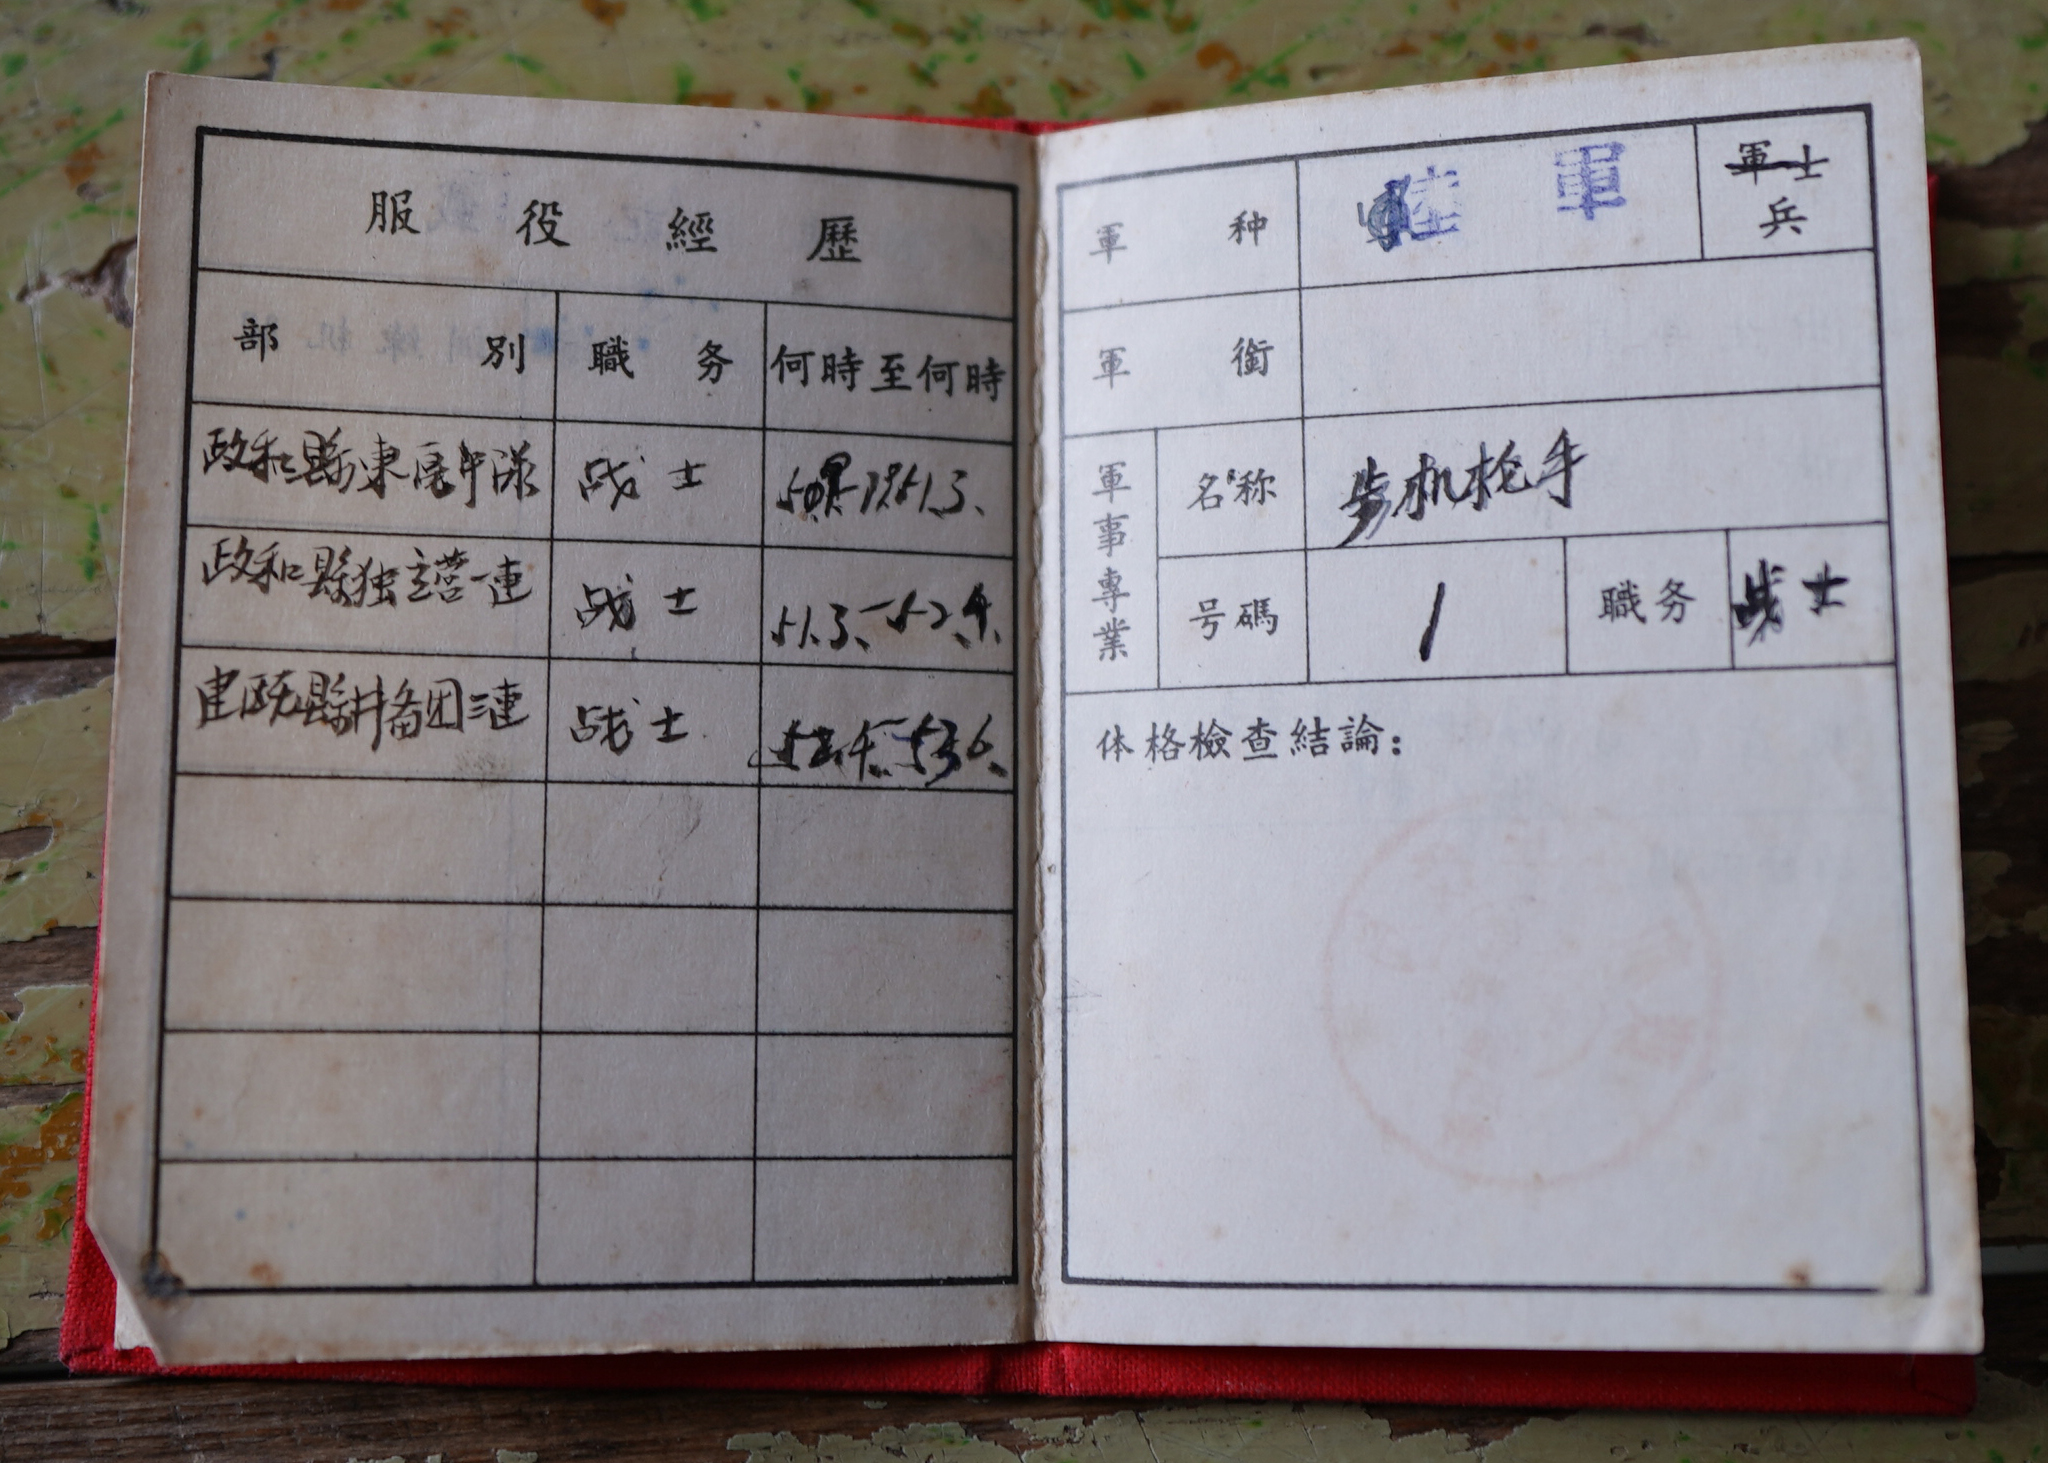 服役經歷
部別 職务 何時至何時
政和縣東 隊 战士 51.3、
政和縣独立营一連 战士 51、3、一52、4、
建瓯縣 备团二連 战士 536、
軍种 陸軍 軍士
兵
軍銜
軍事專業 名称 步机枪手
号碼 1 職务 战士
体格檢查結論: